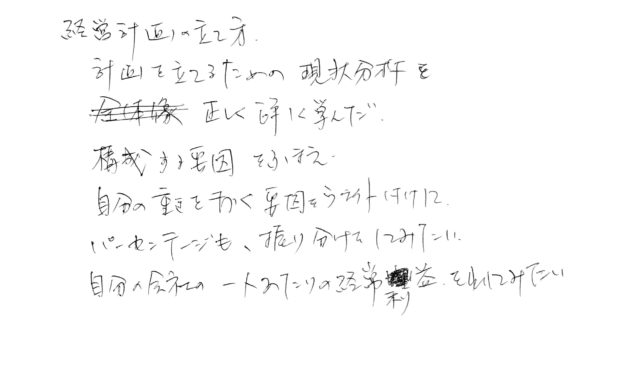 経営計画の立て方.
計画を立てるための 現状分析を
全体像 正しく詳しく学んだ.
構成する要因 をふまえ.
自分の重きをおく要因をウエイト付けに.
パーセンテージも、振り分けをしてみたい.
自分の会社の一人あたりの経常利益.を出してみたい